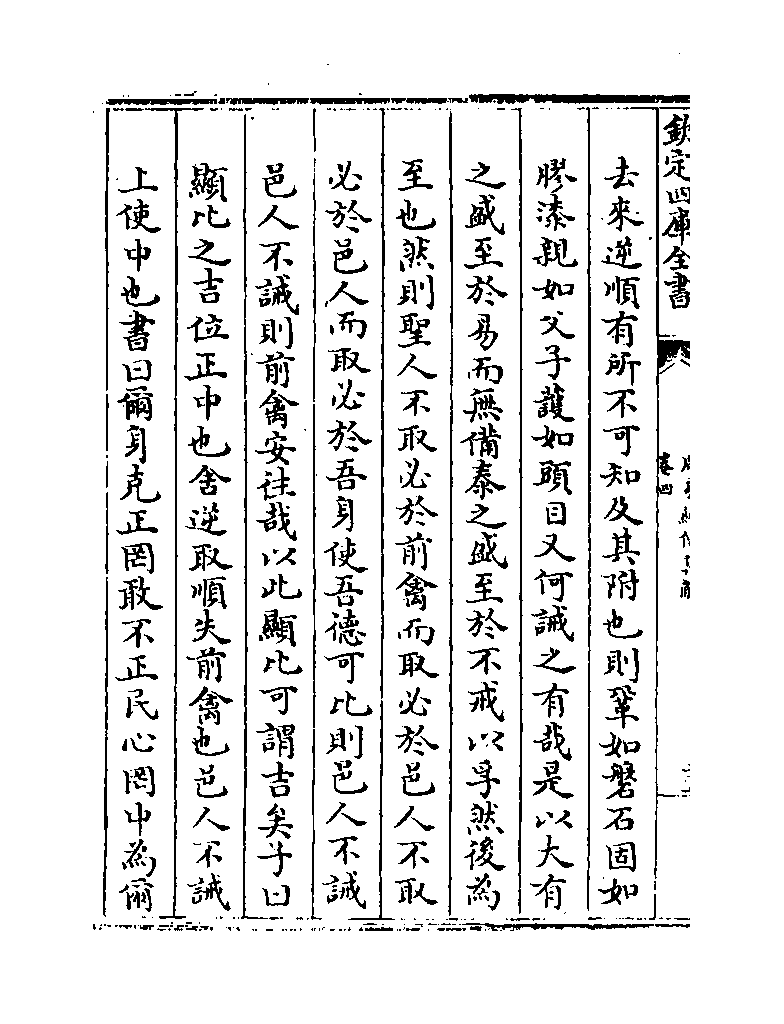 欽定四庫全書
卷四
去來逆順有所不可知及其附也則鞏如磐石固如
膠漆親如父子護如頭目又何誡之有哉是以大有
之盛至於易而無備泰之盛至於不戒以孚然後為
至也然則聖人不取必於前禽而取必於邑人不取
必於邑人而取必於吾身使吾德可比則邑人不誡
邑人不誡則前禽安往哉以此顯比可謂吉矣子曰
顯比之吉位正中也舍逆取順失前禽也邑人不誡
上使中也書曰爾身克正罔敢不正民心罔中為爾